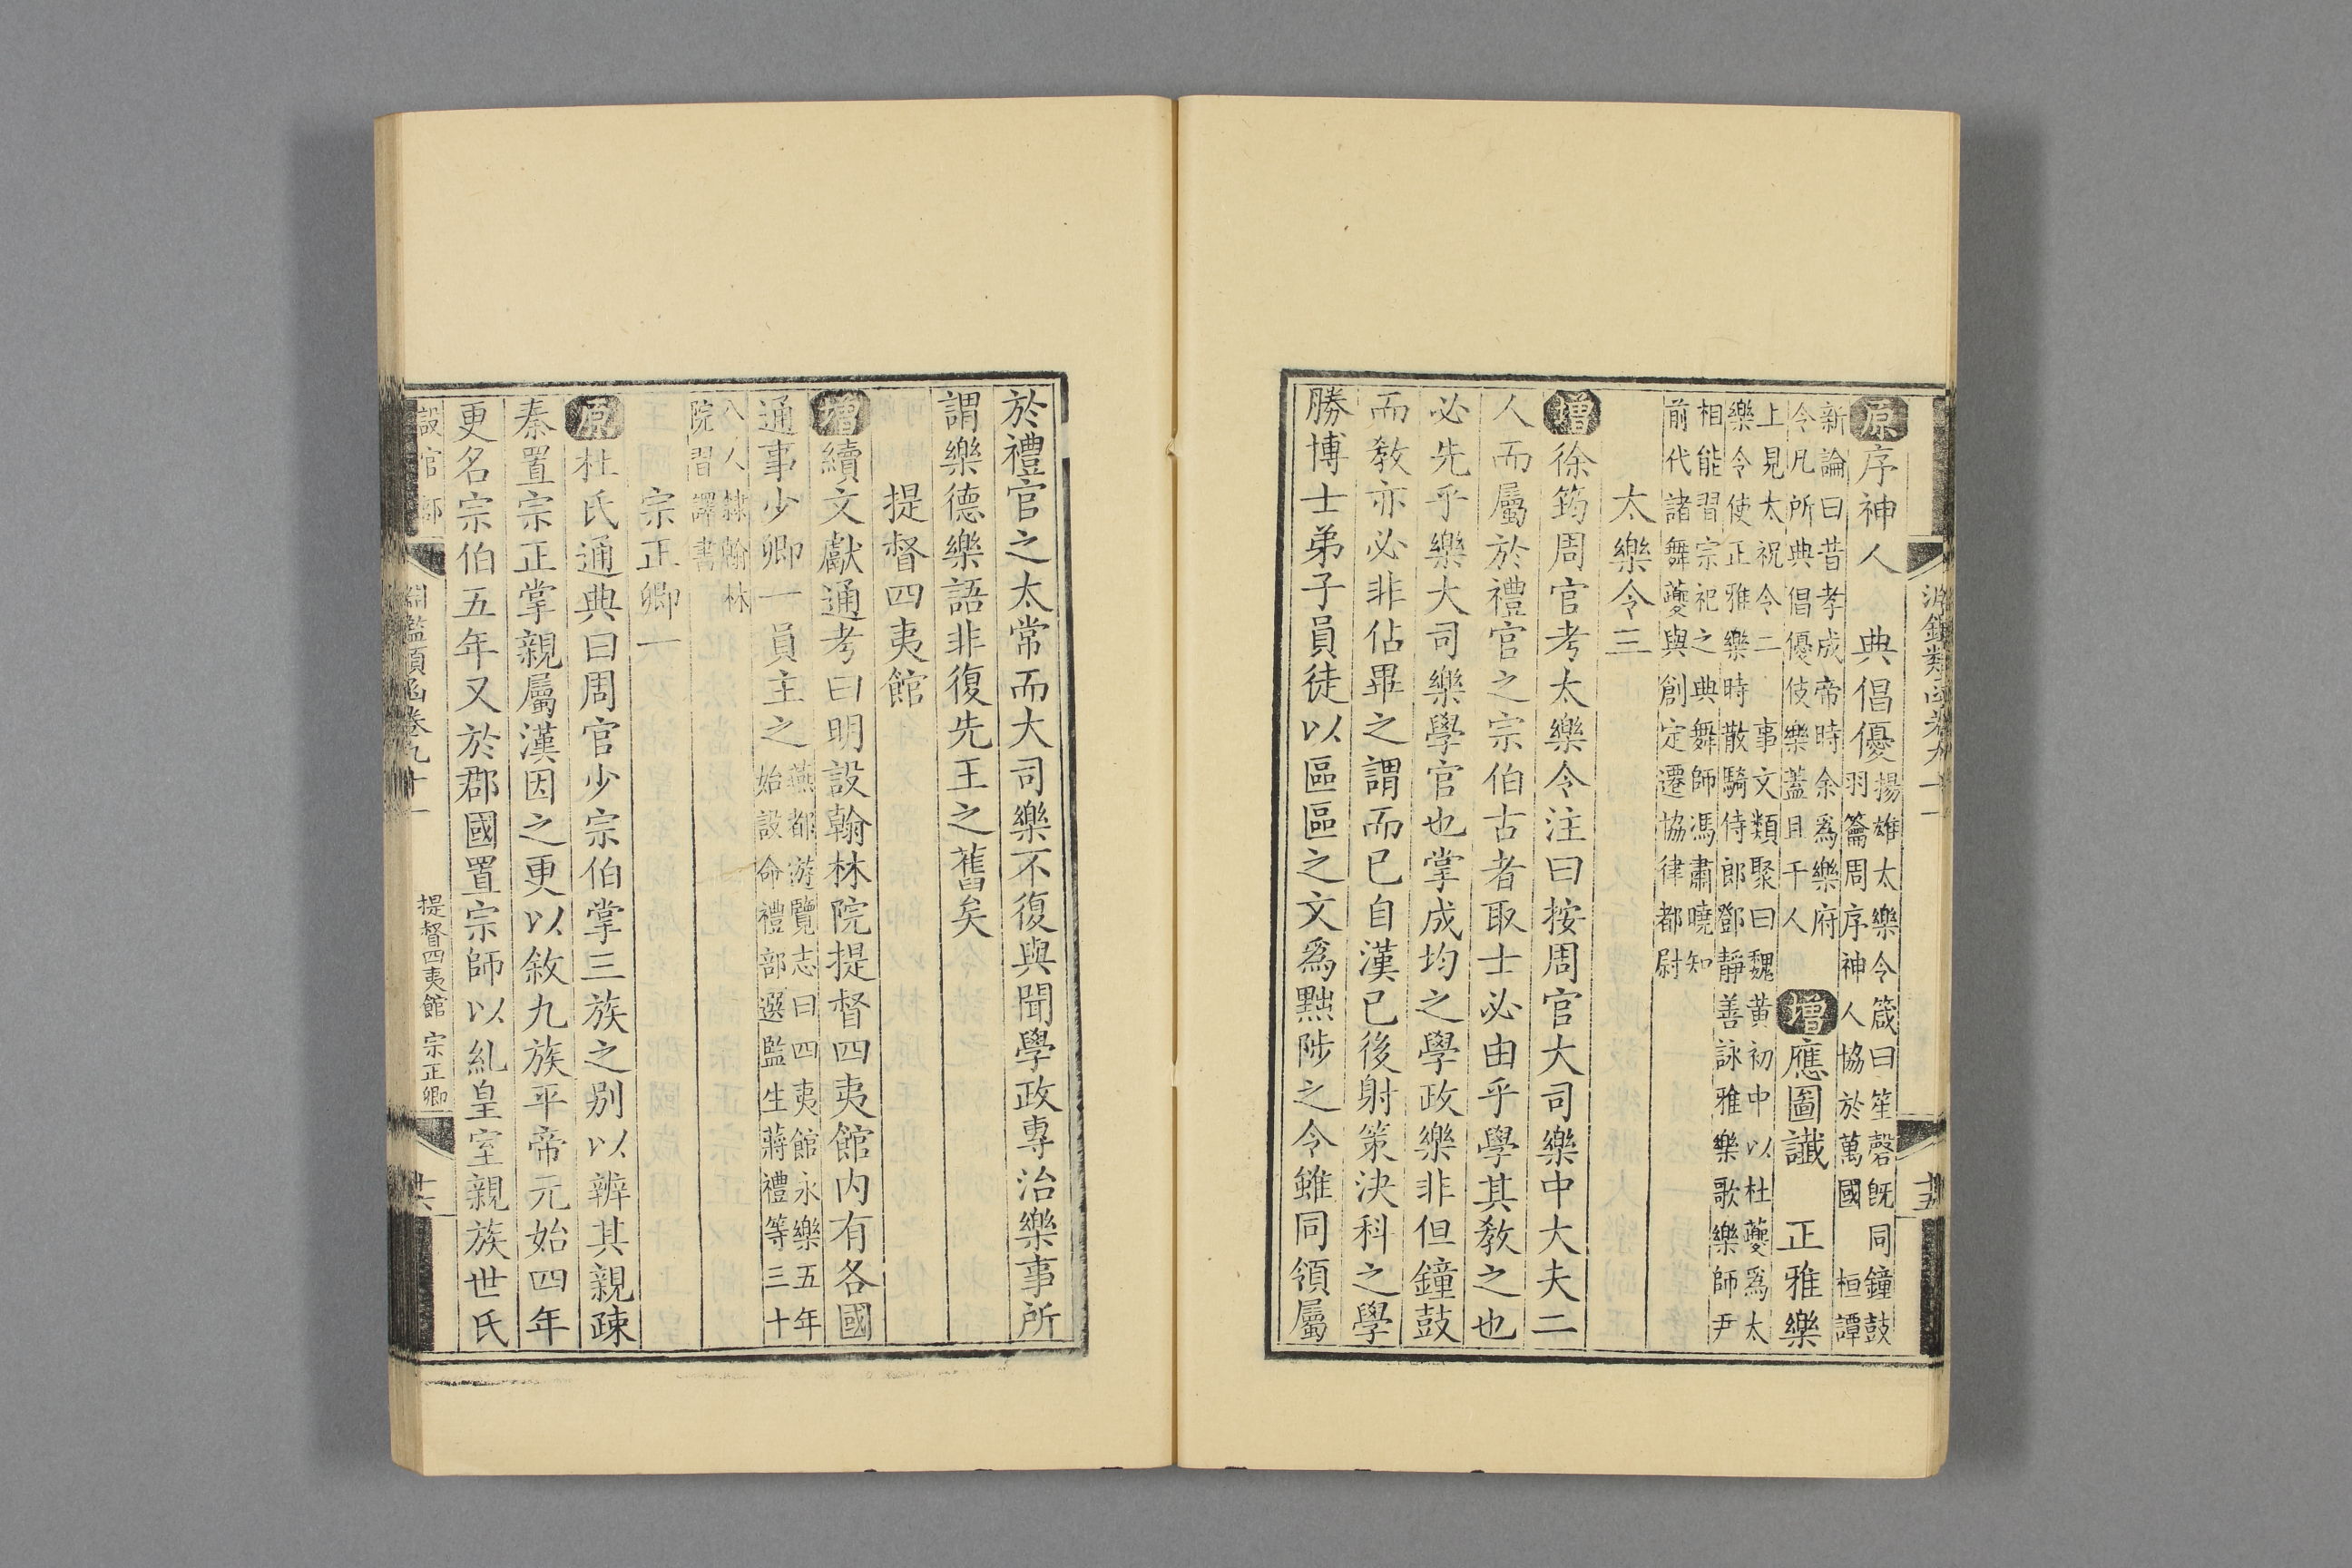 淵鑑類函卷九十一
十五
原序神人　典倡優揚雄太樂令箴曰笙磬旣同鐘鼓
羽籥周序神人協於萬國　桓譚
新論曰昔孝成帝時余爲樂府
令凡所典倡優伎樂蓋且千人
增應圖讖　正雅樂
上見太祝令二　事文類聚曰魏黃初中以杜夔爲太
樂令使正雅樂時散騎侍郎鄧靜善詠雅樂歌樂師尹
相能習宗祀之典舞師馮肅曉知
前代諸舞夔與創定遷協律都尉
太樂令三
增徐筠周官考太樂令注曰按周官大司樂中大夫二
人而屬於禮官之宗伯古者取士必由乎學其敎之也
必先乎樂大司樂學官也掌成均之學政樂非但鐘鼓
而敎亦必非佔畢之謂而已自漢已後射策決科之學
勝博士弟子員徒以區區之文爲黜陟之令雖同領屬
於禮官之太常而大司樂不復與聞學政專治樂事所
謂樂德樂語非復先王之舊矣
提督四夷館
增續文獻通考曰明設翰林院提督四夷館内有各國
通事少卿一員主之燕都游覽志曰四夷館永樂五年
始設命禮部選監生蔣禮等三十
八人隸翰林
院習譯書
宗正卿一
原杜氏通典曰周官少宗伯掌三族之別以辨其親疎
秦置宗正掌親屬漢因之更以敘九族平帝元始四年
更名宗伯五年又於郡國置宗師以糺皇室親族世氏
設官部
淵鑑類函卷九十一
提督四夷館　宗正卿一
十六